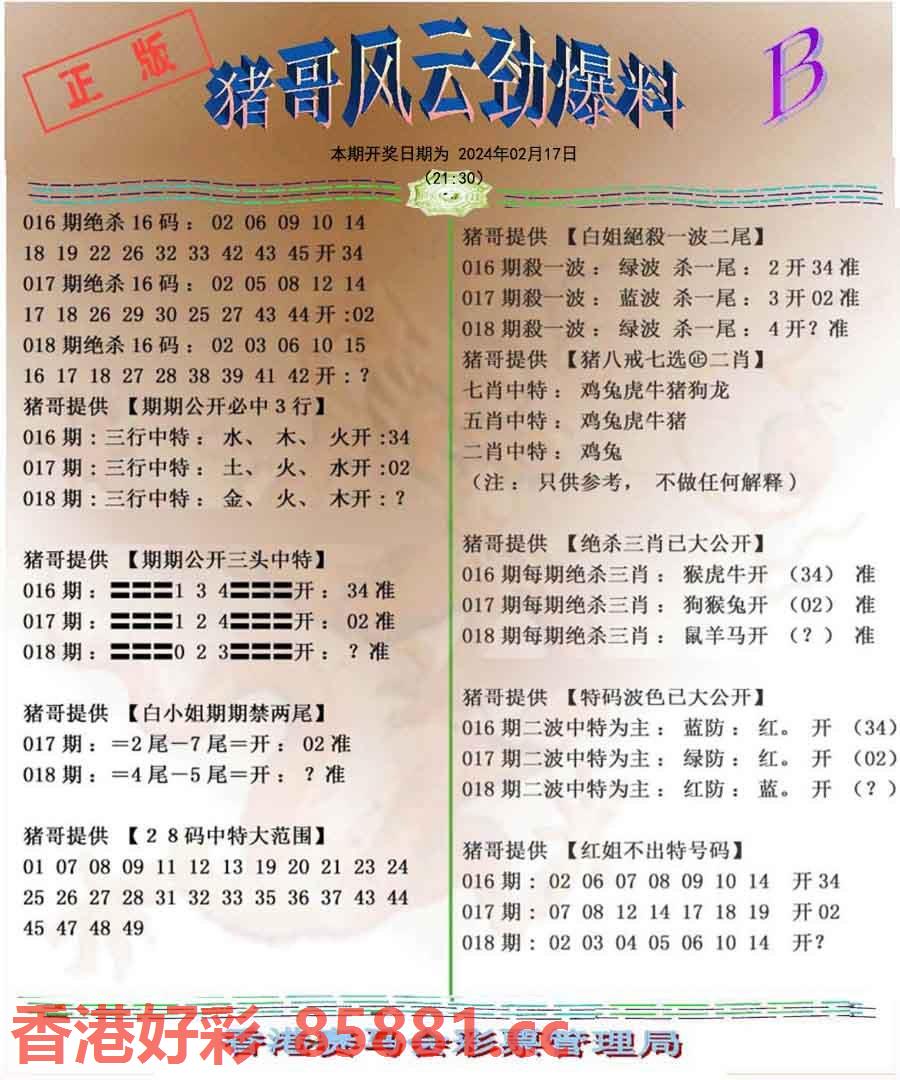 正版
猪哥风云劲爆料
B
本期开奖日期为 2024年02月17日
(21:30)
016期绝杀16码: 02 06 09 10 14
18 19 22 26 32 33 42 43 45开34
017期绝杀16码: 02 05 08 12 14
17 18 26 29 30 25 27 43 44开:02
018期绝杀16码: 02 03 06 10 15
16 17 18 27 28 38 39 41 42开:?
猪哥提供 【期期公开必中3行】
016期:三行中特: 水、 木、 火开:34
017期:三行中特: 土、 火、 水开:02
018期:三行中特: 金、 火、 木开:?
猪哥提供 【期期公开三头中特】
016期: 〓〓〓1 3 4〓〓〓开: 34准
017期: 〓〓〓1 2 4〓〓〓开: 02准
018期: 〓〓〓0 2 3〓〓〓开: ?准
猪哥提供 【白小姐期期禁两尾】
017期:=2尾—7尾=开: 02准
018期:=4尾—5尾=开: ?准
猪哥提供 【28码中特大范围】
01 07 08 09 11 12 13 19 20 21 23 24
25 26 27 28 31 32 33 35 36 37 43 44
45 47 48 49
猪哥提供 【白姐絕殺一波二尾】
016期殺一波: 绿波 杀一尾: 2开34准
017期殺一波: 蓝波 杀一尾: 3开02准
018期殺一波: 绿波 杀一尾: 4开?准
猪哥提供 【猪八戒七选㊣二肖】
七肖中特: 鸡兔虎牛猪狗龙
五肖中特: 鸡兔虎牛猪
二肖中特: 鸡兔
(注: 只供参考, 不做任何解释)
猪哥提供 【绝杀三肖已大公开】
016期每期绝杀三肖: 猴虎牛开 (34) 准
017期每期绝杀三肖: 狗猴兔开 (02) 准
018期每期绝杀三肖: 鼠羊马开 (?) 准
猪哥提供 【特码波色已大公开】
016期二波中特为主: 蓝防: 红。 开 (34)
017期二波中特为主: 绿防: 红。 开 (02)
018期二波中特为主: 红防: 蓝。 开 (?)
猪哥提供 【红姐不出特号码】
016期: 02 06 07 08 09 10 14 开34
017期: 07 08 12 14 17 18 19 开02
018期: 02 03 04 05 06 10 14 开?
香港好彩 85881.cc
香港赛马会彩票管理局